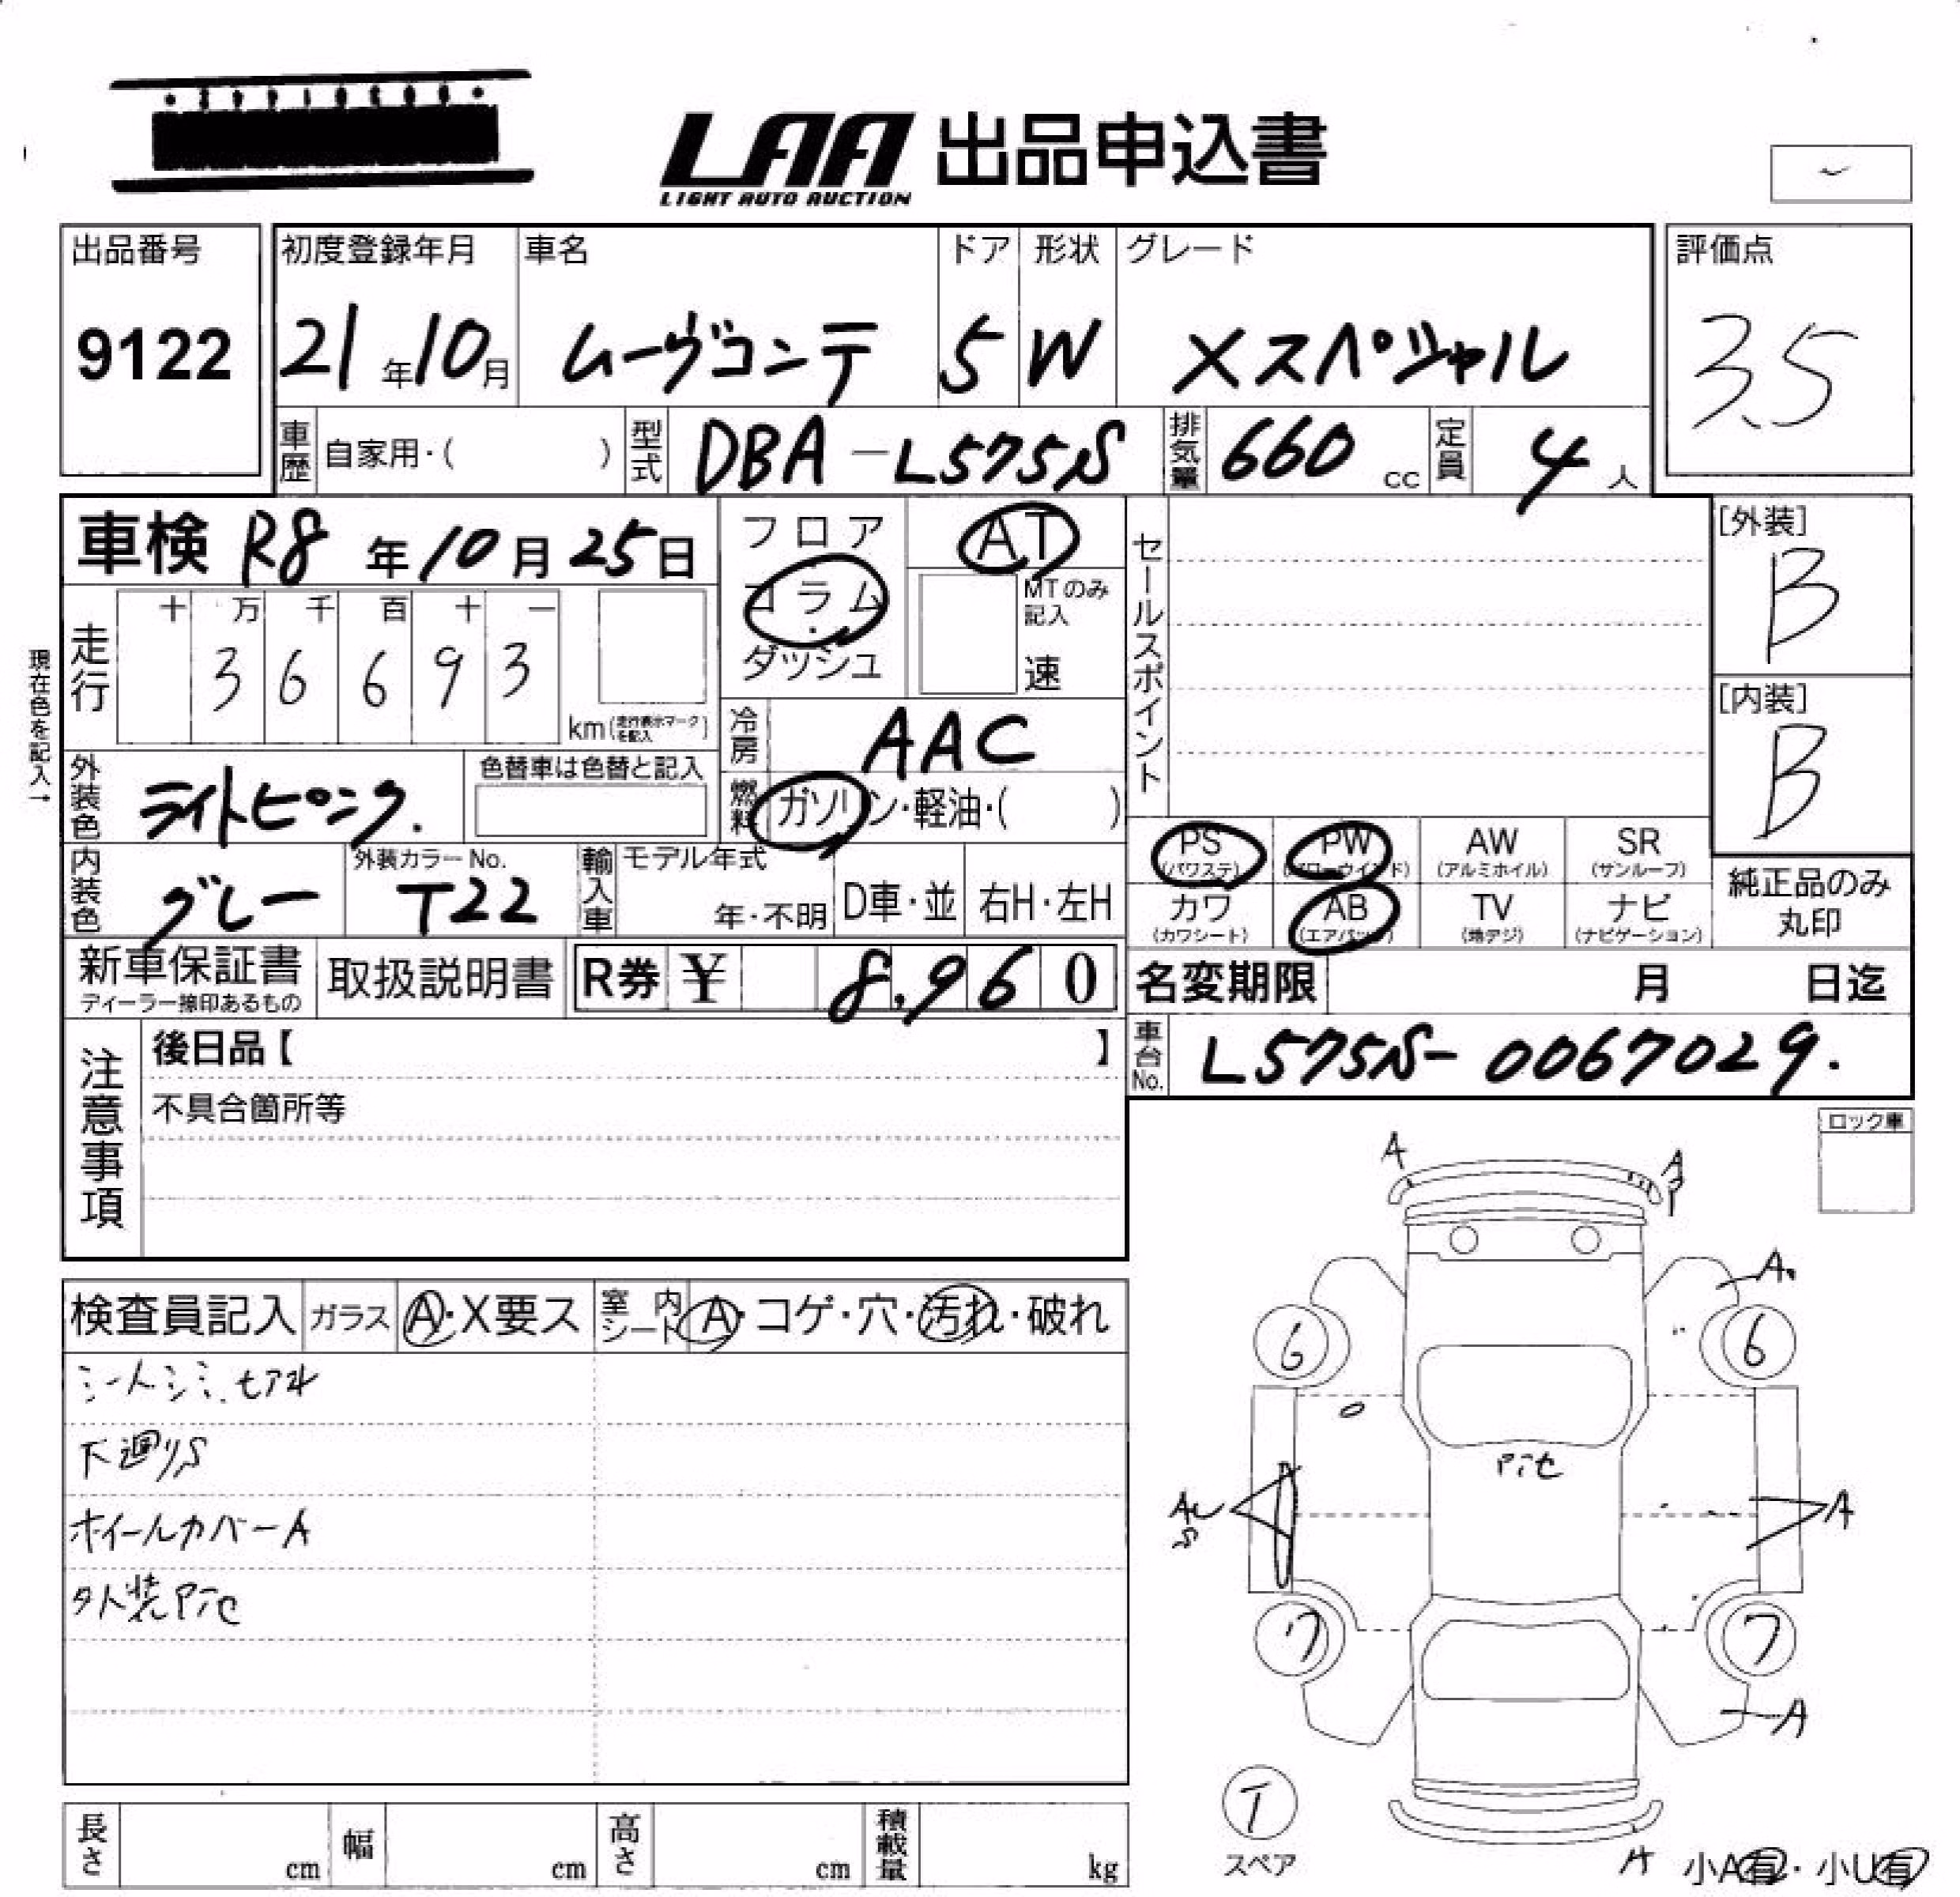 LAA 出品申込書
LIGHT AUTO AUCTION
出品番号 初度登録年月 車名 ドア 形状 グレード 評価点
9122 21年10月 ムーヴコンテ 5 W Xスペシャル 3.5
車歴 自家用・( ) 型式 DBA-L575S 排気量 660 cc 定員 4人
車検 R8年10月25日
フロア
コラム
ダッシュ
AT
MTのみ
記入
速
セールスポイント
[外装]
B
[内装]
B
現在色を記入→
走行 十 万 千 百 十 一
3 6 6 9 3
km(走行表示マークを記入)
冷房 AAC
外装色 ライトピンク. 色替車は色替と記入
燃料 ガソリン・軽油・( )
内装色 グレー 外装カラーNo. T22
輸入車 モデル年式 年・不明 D車・並 右H・左H
PS (パワステ) PW (パワーウインド) AW (アルミホイル) SR (サンルーフ)
カワ (カワシート) AB (エアバッグ) TV (地デジ) ナビ (ナビゲーション)
純正品のみ
丸印
新車保証書 取扱説明書 R券 ¥ 8,960
ディーラー捺印あるもの
名変期限 月 日迄
車台No. L575S-0067029.
注意事項
後日品【 】
不具合箇所等
ロック車
検査員記入 ガラス A・X要ス 室内シート A・コゲ・穴・汚れ・破れ
シートシミ.
下廻りS
ホイールカバーA
外装
A A
A
6 6
A
7 7
A
T
スペア
A 小A有・小U有
長さ cm 幅 cm 高さ cm 積載量 kg